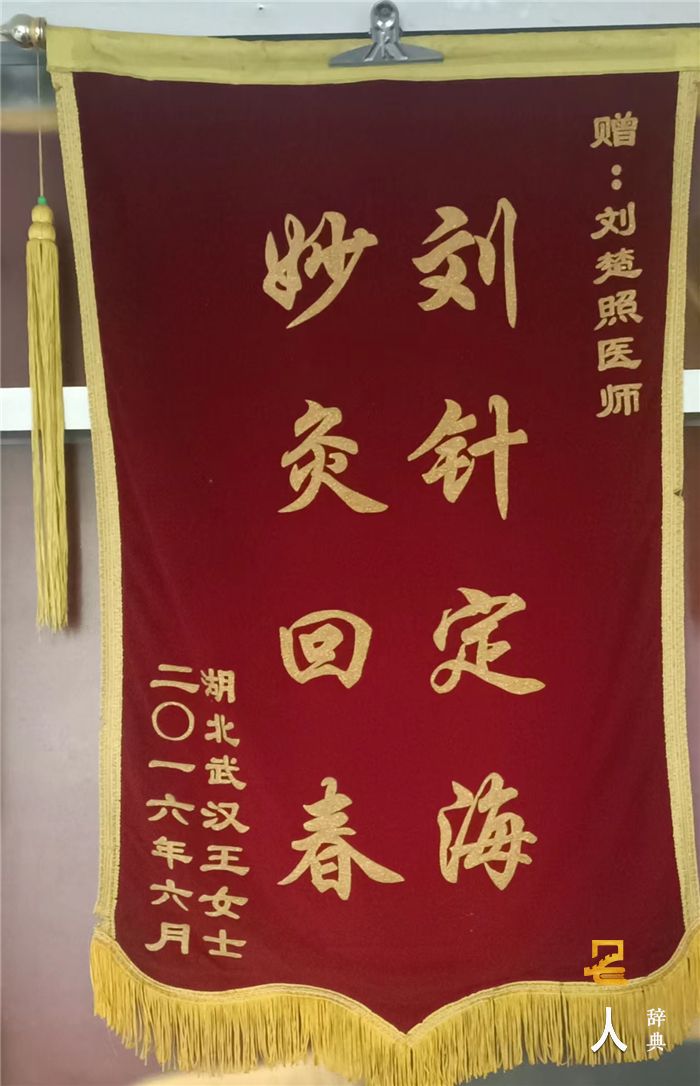 赠：刘楚照医师
刘针定海
妙灸回春
湖北武汉王女士
二〇一六年六月
名人
辞典